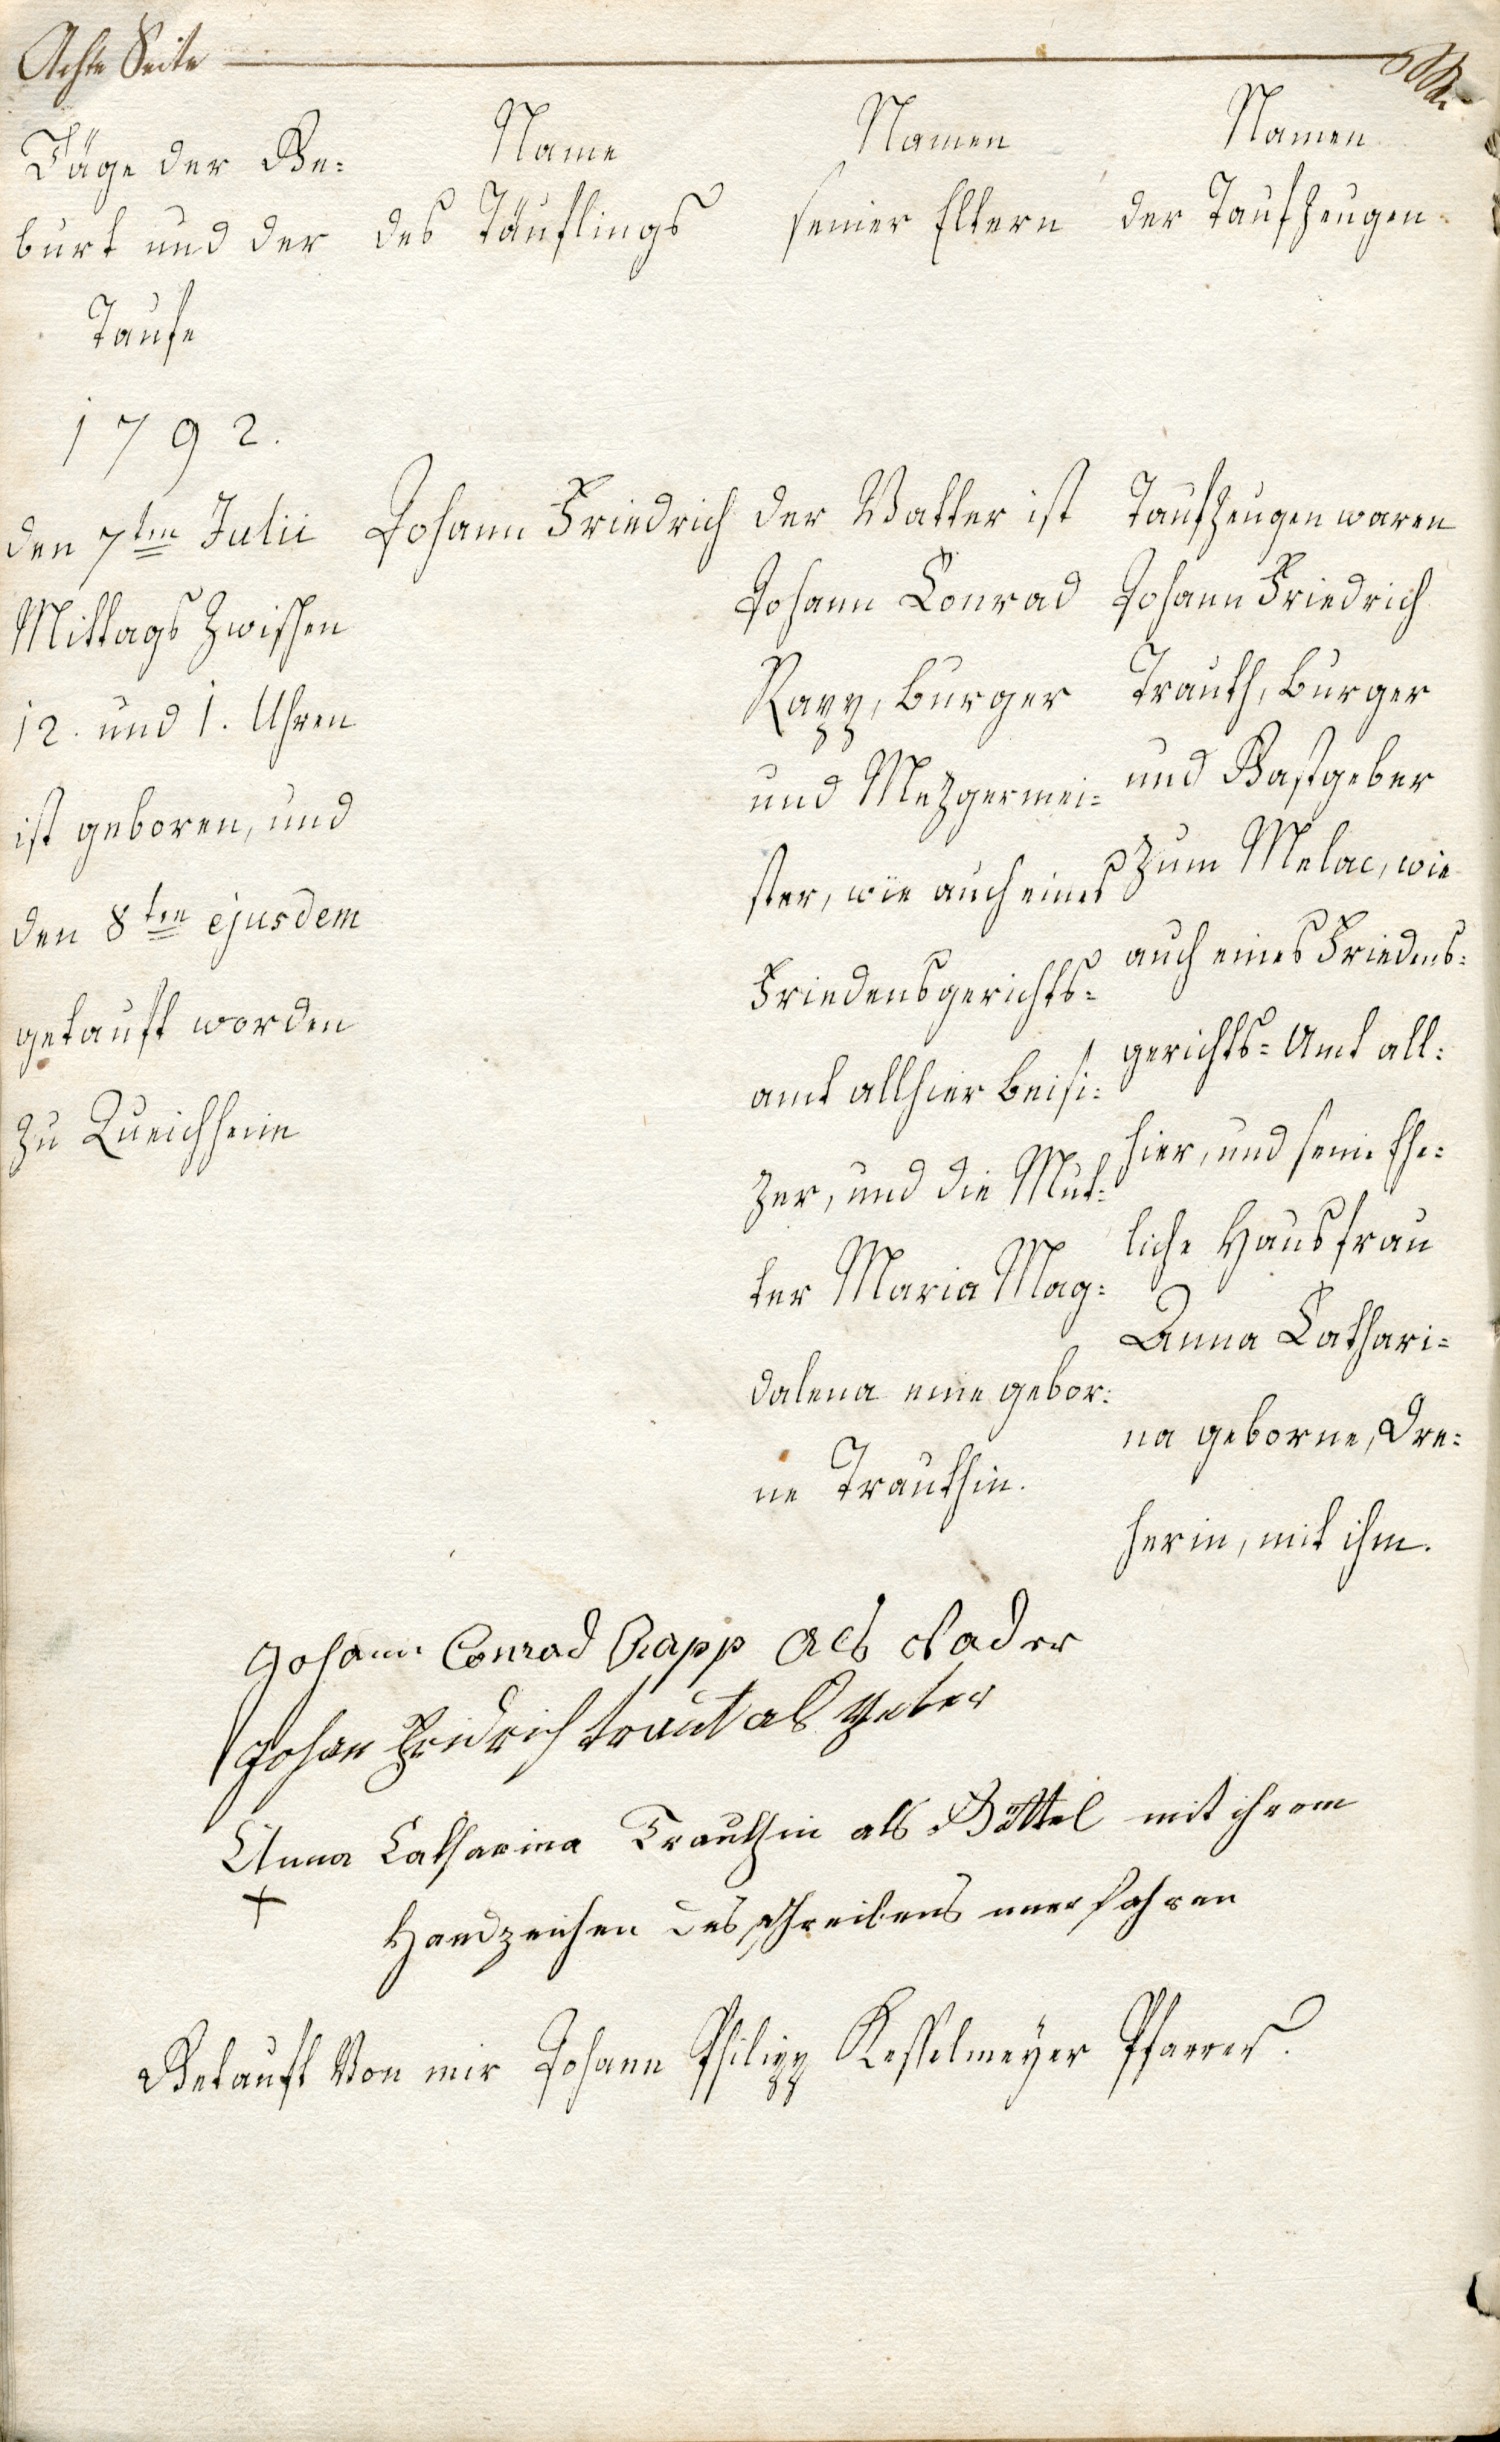 Achte Seite
Täge der Ge=
burt und der
Taufe
1792.
den 7ten Julii
Mittags zwischen
12. und 1. Uhren
ist geboren, und
den 8ten ejusdem
getauft worden
zu Queichheim
Name
des Täuflings
Johann Friedrich
Namen
seiner Eltern
der Vatter ist
Johann Conrad
Rapp, burger
und Mezgermei=
ster, wie auch eines
Friedensgerichts=
amt allhier beisi=
zer, und die Mut=
ter Maria Mag=
dalena eine gebor=
ne Trauthin.
Namen
der Taufzeugen
Taufzeugen waren
Johann Friedrich
Trauth, burger
und Gastgeber
zum Melac, wie
auch eines Friedens=
gerichts=Amt all=
hier, und seine Ehe=
liche Hausfrau
Anna Cathari=
na geborne, Dre=
herin, mit ihm.
Johann Conrad Rapp als Vader
Johan Fridrich traut als Peter
Anna Catharina Trauthin als Göttel mit ihrem
+
Handzeichen des schreibens unerfahren
Getauft Von mir Johann Philipp Kesselmeyer Pfarrer.